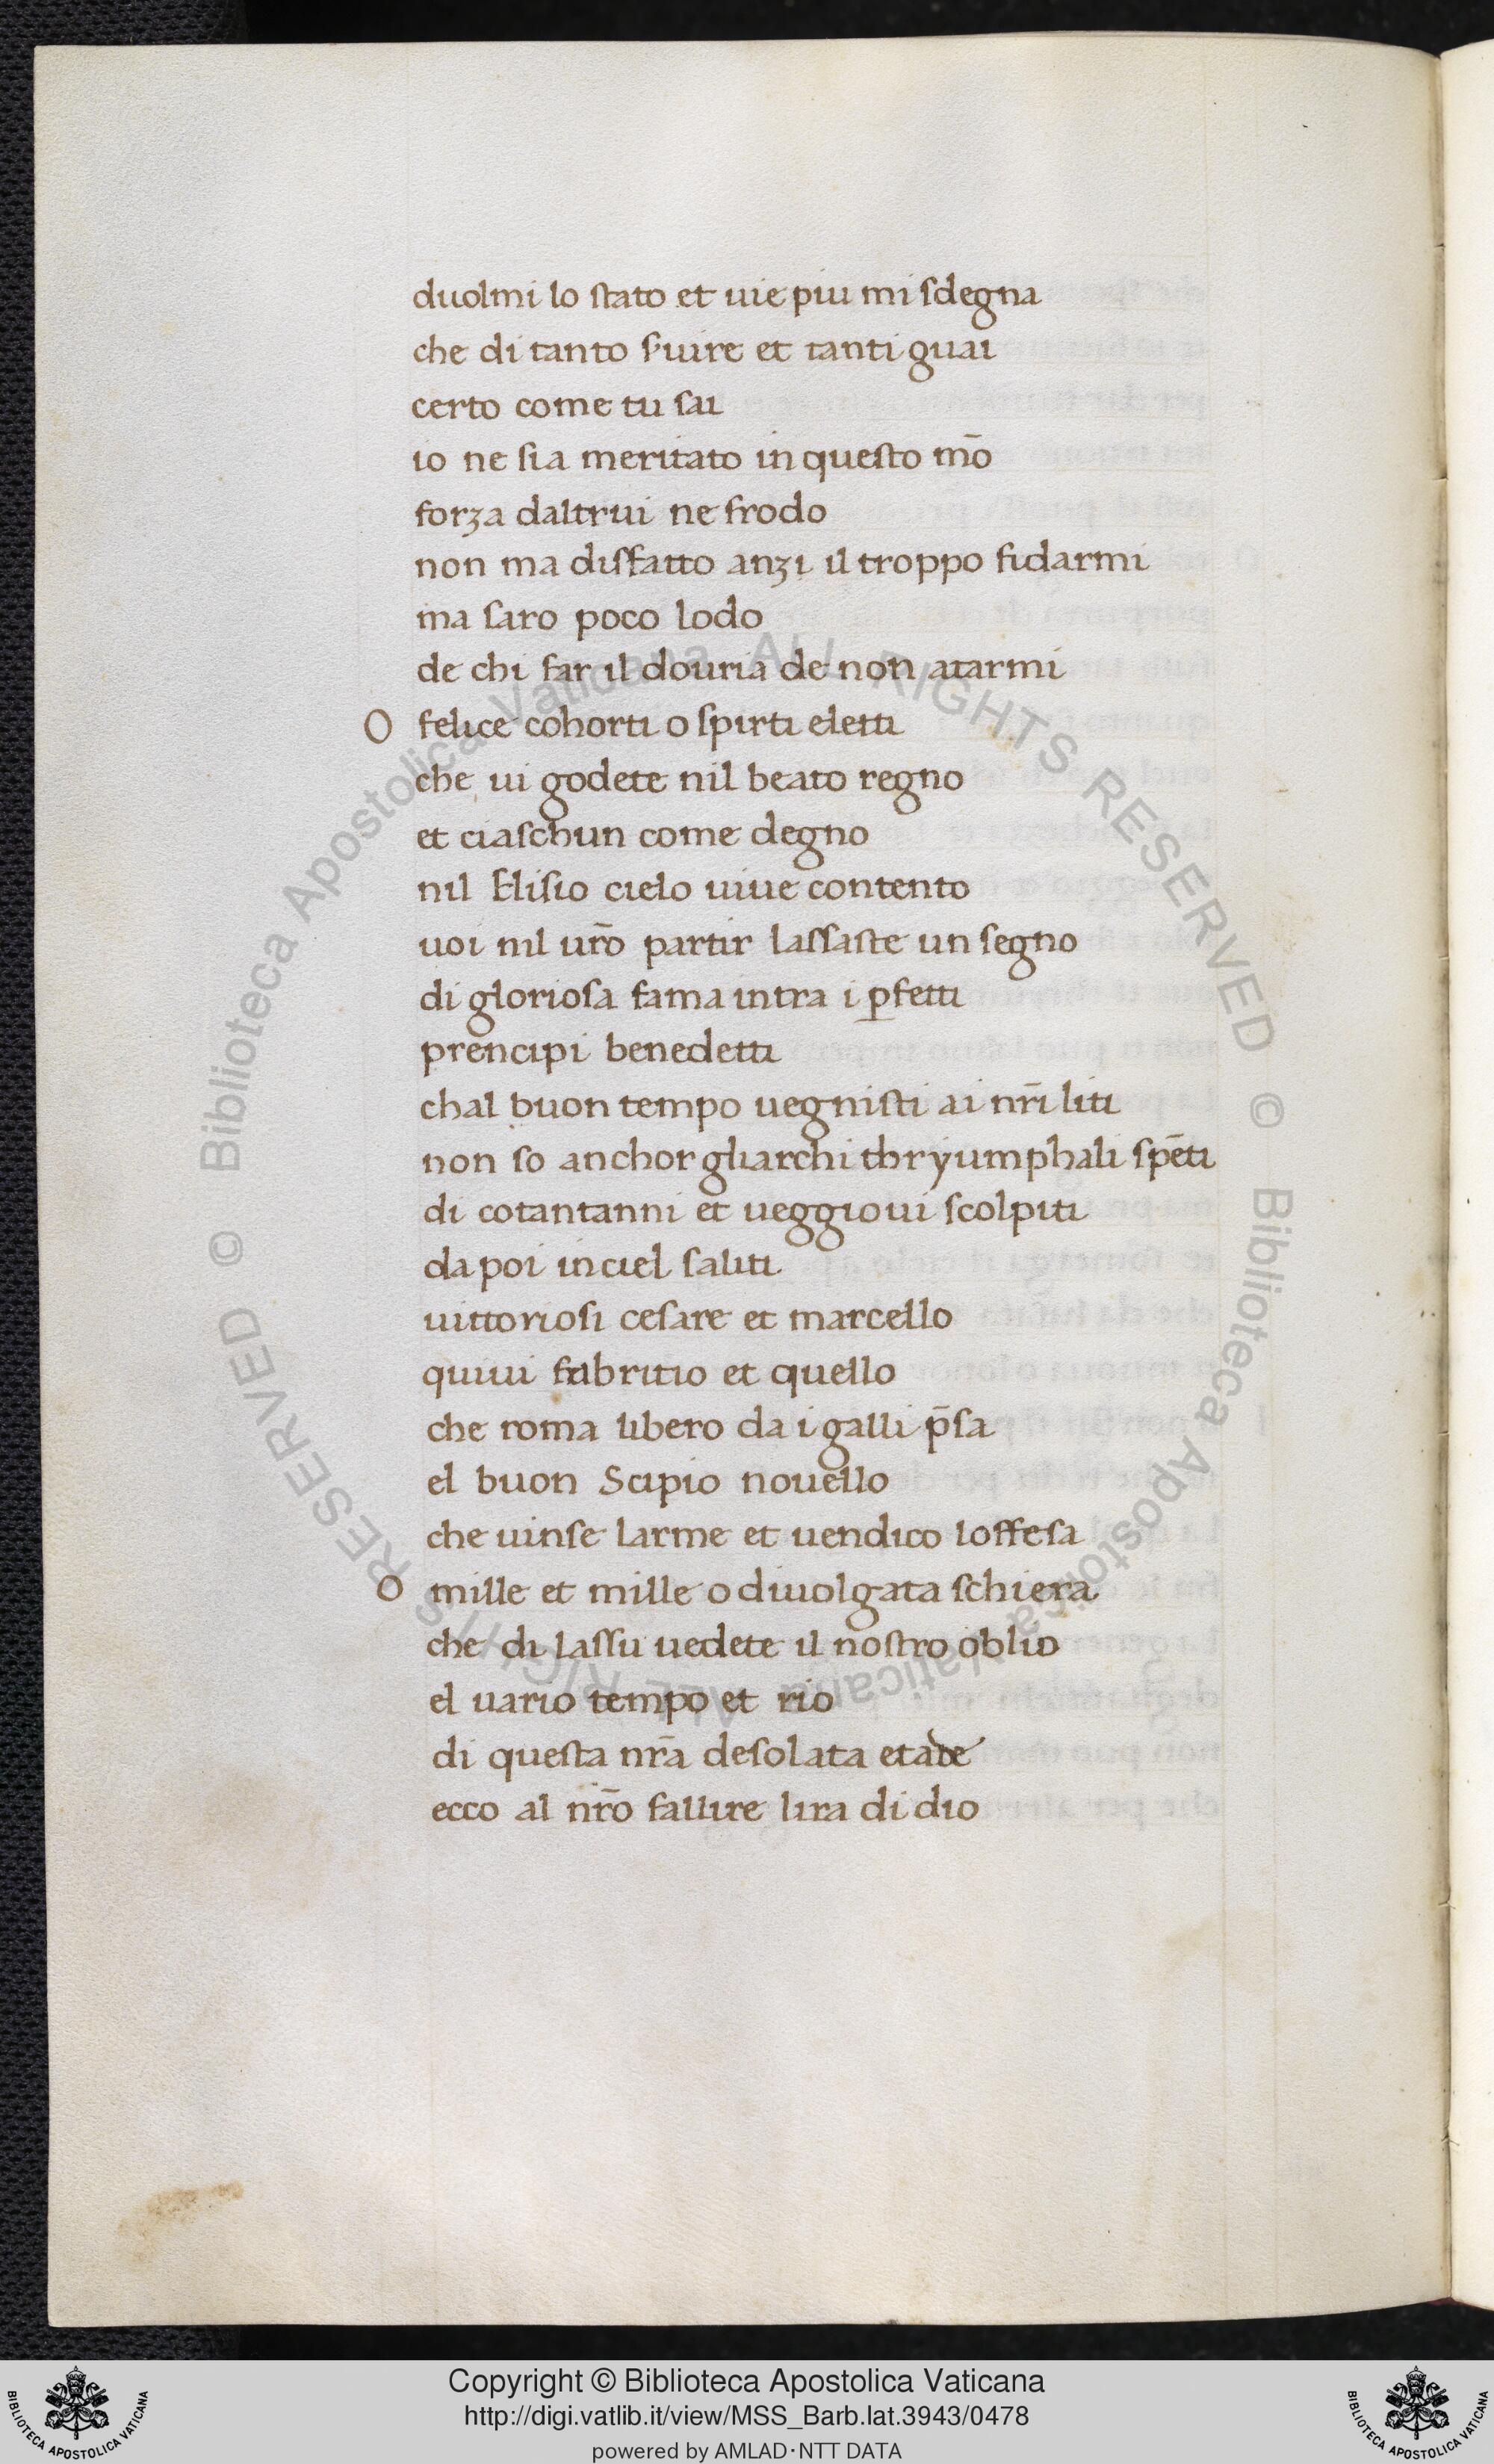 duolmi lo ſtato et uie piu mi ſdegna
che di tanto ſ'uire et tanti guai
certo come tu ſai
io ne ſia meritato in queſto mō
forza daltrui ne frodo
non ma diſfatto anzi il troppo fidarmi
ma ſaro poco lodo
de chi far il douria de non atarmi
O felice cohorti o ſpirti eletti
che ui godete nil beato regno
et ciaſchun come degno
nil Eliſio cielo uiue contento
uoi nil ur̄o partir laſſaſte un ſegno
di glorioſa fama intra i ꝑfetti
prencipi benedetti
chal buon tempo uegniſti ai nr̄i liti
non ſo anchor gliarchi thryumphali ſpēti
di cotantanni et ueggioui ſcolpiti
da poi in ciel ſaliti
uittorioſi ceſare et marcello
quiui fabritio et quello
che roma libero da i galli p̄ſa
el buon Scipio nouello
che uinſe larme et uendico loffeſa
O mille et mille o diuolgata ſchiera
che di laſſu uedete il noſtro oblio
el uario tempo et rio
di queſta nr̄a deſolata etade
ecco al nr̄o fallire lira di dio
© Biblioteca Apostolica Vaticana ALL RIGHTS RESERVED
© Biblioteca Apostolica Vaticana ALL RIGHTS RESERVED
BIBLIOTECA APOSTOLICA VATICANA
Copyright © Biblioteca Apostolica Vaticana
http://digi.vatlib.it/view/MSS_Barb.lat.3943/0478
powered by AMLAD·NTT DATA
BIBLIOTECA APOSTOLICA VATICANA